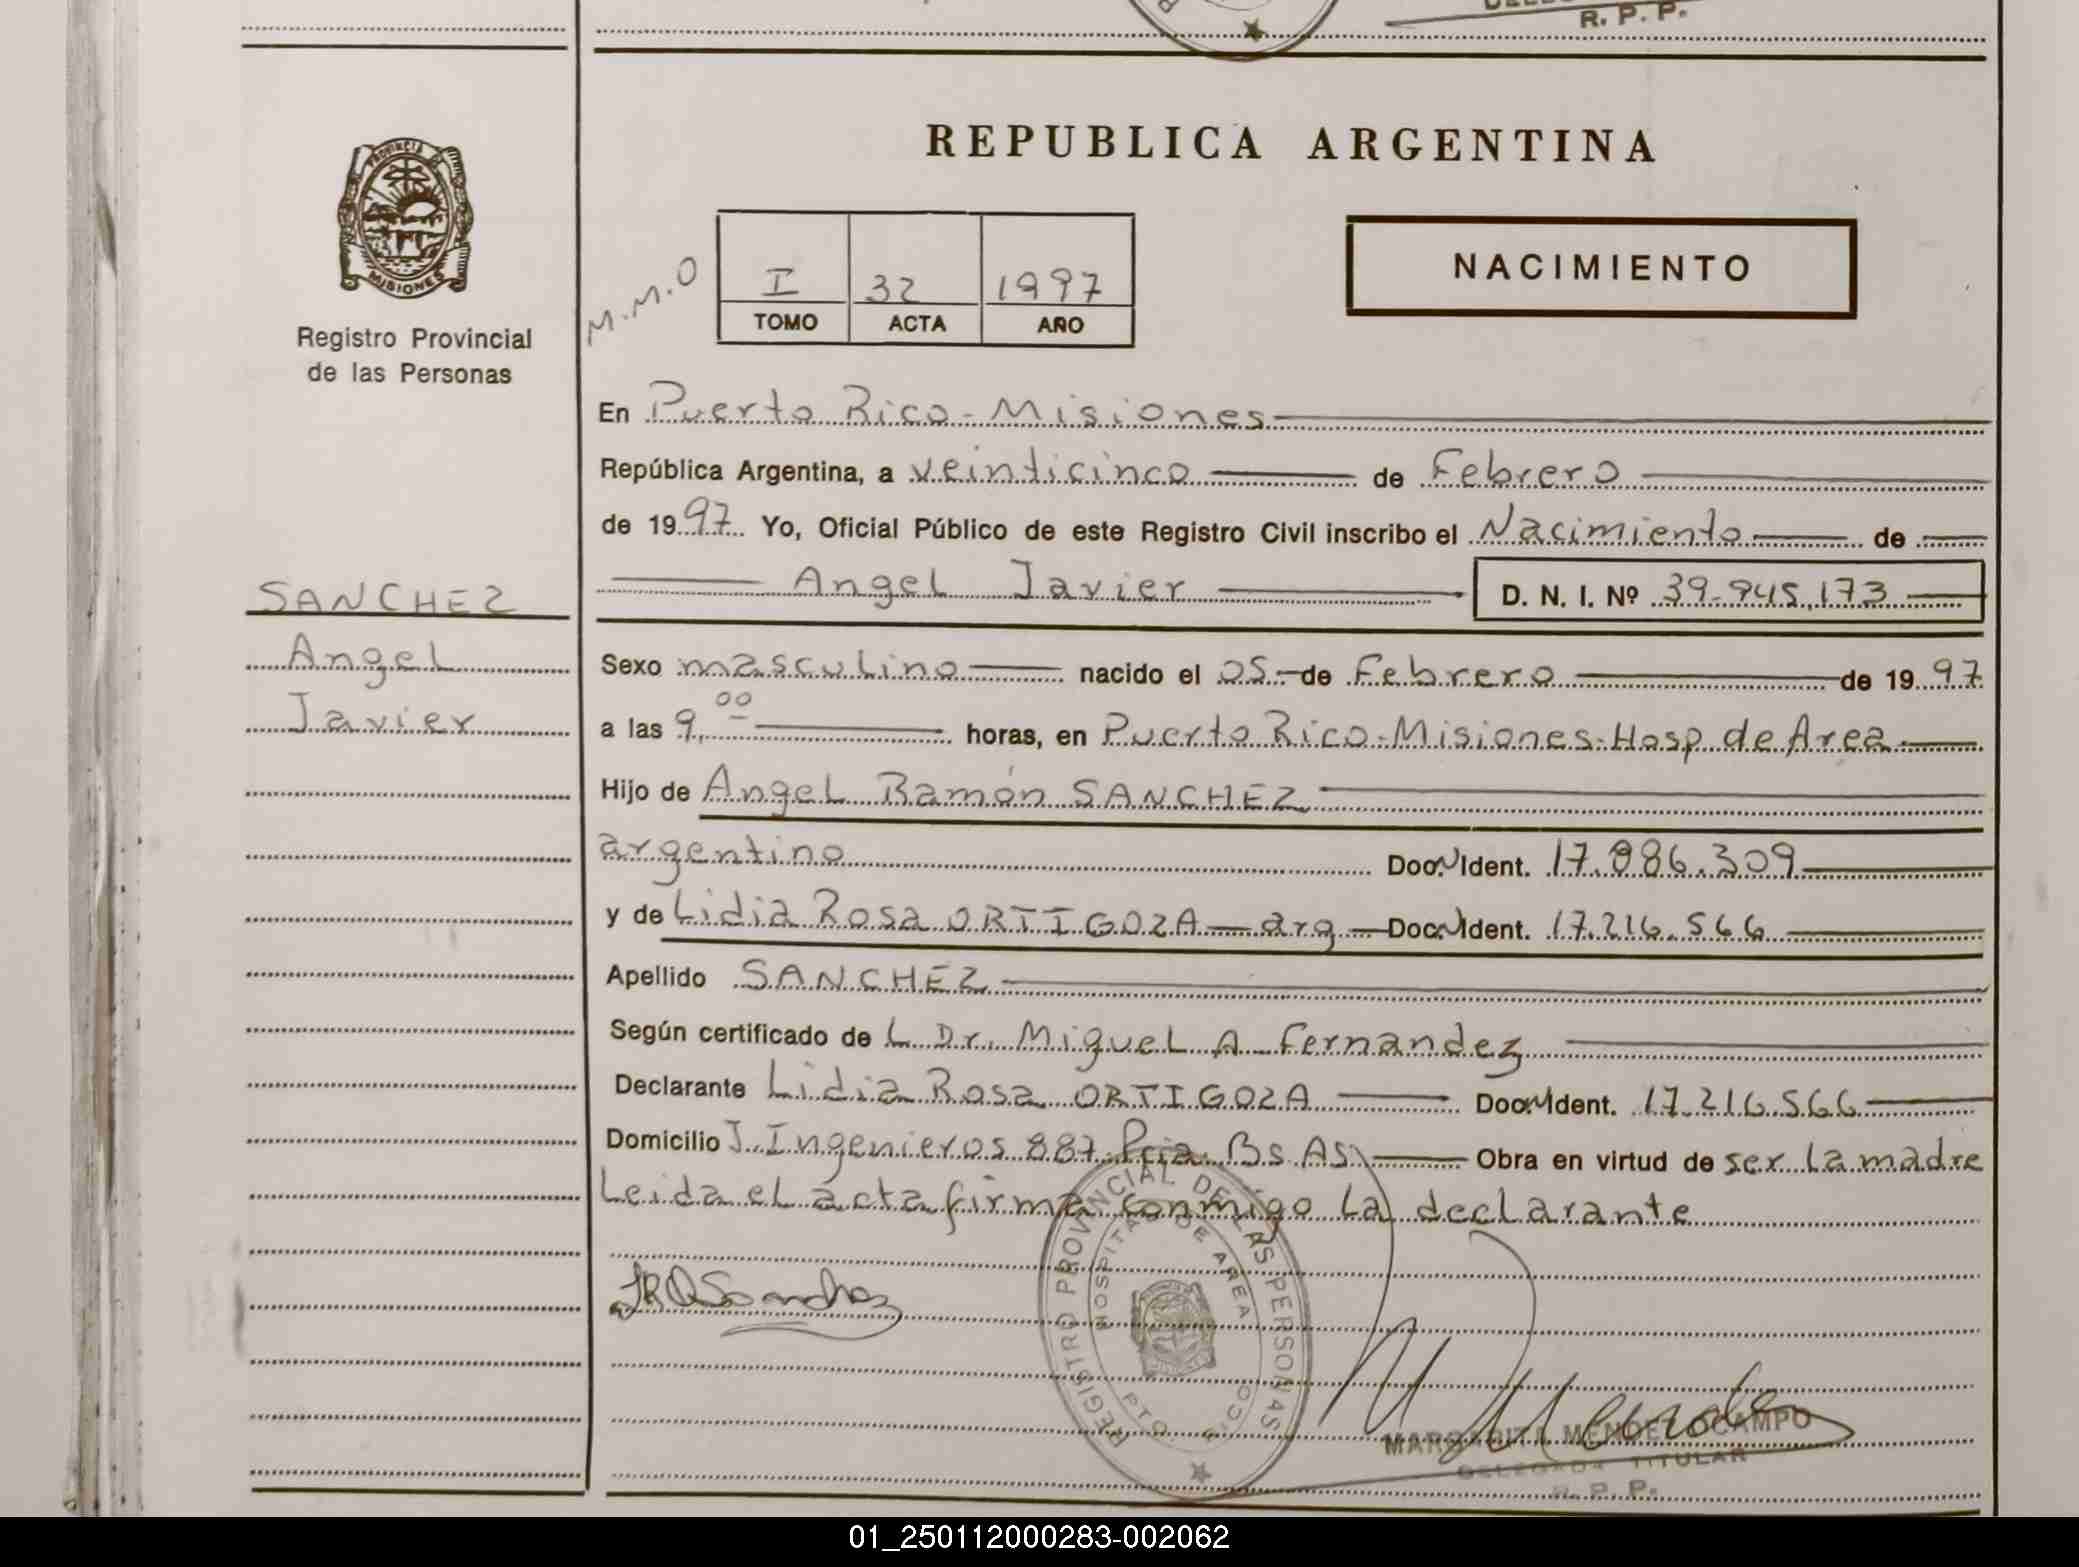 R. P. P.
PROVINCIA DE
MISIONES
Registro Provincial
de las Personas
SANCHEZ
Angel
Javier
REPUBLICA ARGENTINA
M.M.O
I 32 1997
TOMO ACTA AÑO
NACIMIENTO
En Puerto Rico - Misiones
República Argentina, a veinticinco de Febrero
de 1997 Yo, Oficial Público de este Registro Civil inscribo el Nacimiento de
Angel Javier D. N. I. Nº 39.945.173
Sexo masculino nacido el 05 de Febrero de 1997
a las 9,00 horas, en Puerto Rico - Misiones - Hosp. de Area
Hijo de Angel Ramón SANCHEZ
argentino Doc. Ident. 17.886.309
y de Lidia Rosa ORTIGOZA - arg - Doc. Ident. 17.216.566
Apellido SANCHEZ
Según certificado de L Dr. Miguel A. Fernandez
Declarante Lidia Rosa ORTIGOZA Doc. Ident. 17.216.566
Domicilio J. Ingenieros 887 Pcia. Bs As Obra en virtud de ser la madre
Leida el acta firma conmigo la declarante
REGISTRO PROVINCIAL DE LAS PERSONAS
HOSPITAL DE AREA
PTO. RICO
MARGARITA MENDEZ OCAMPO
DELEGADA TITULAR
R. P. P.
01_250112000283-002062